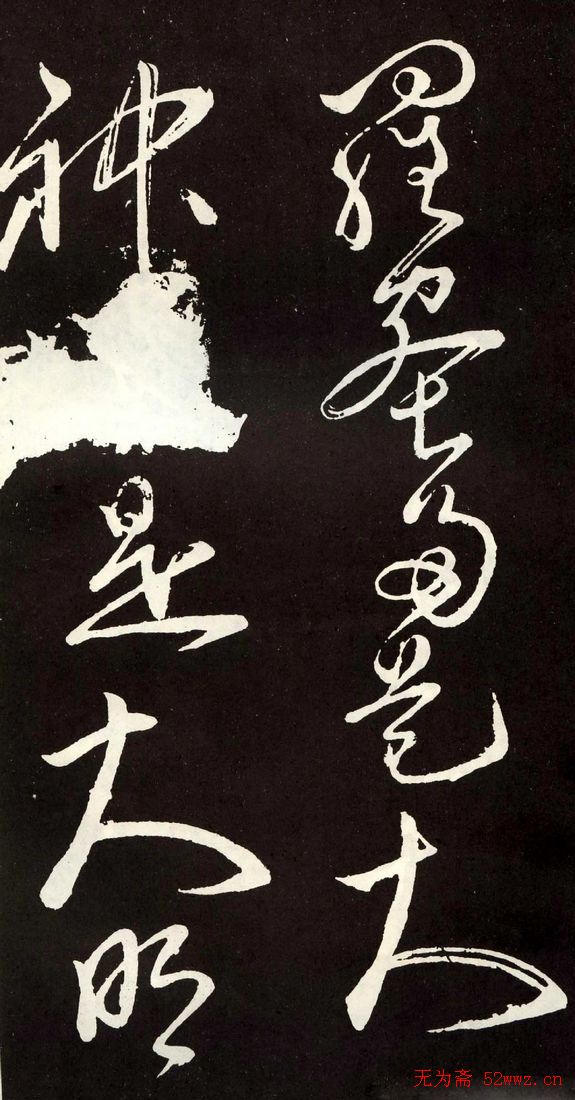 羅蜜多是大
神是大明
无为斋 52wwz.cn